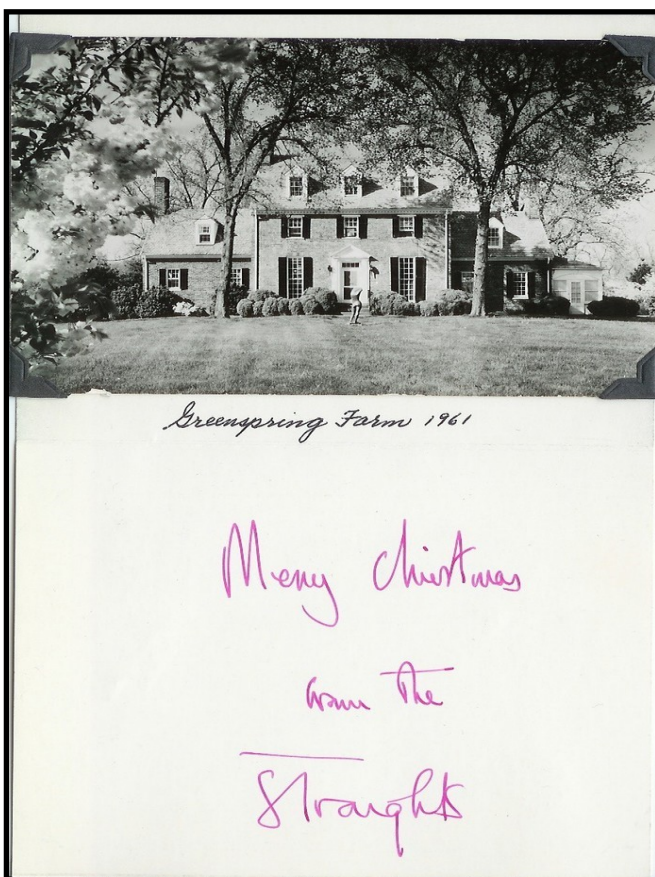 Greenspring Farm 1961
Merry Christmas
from the
Straights